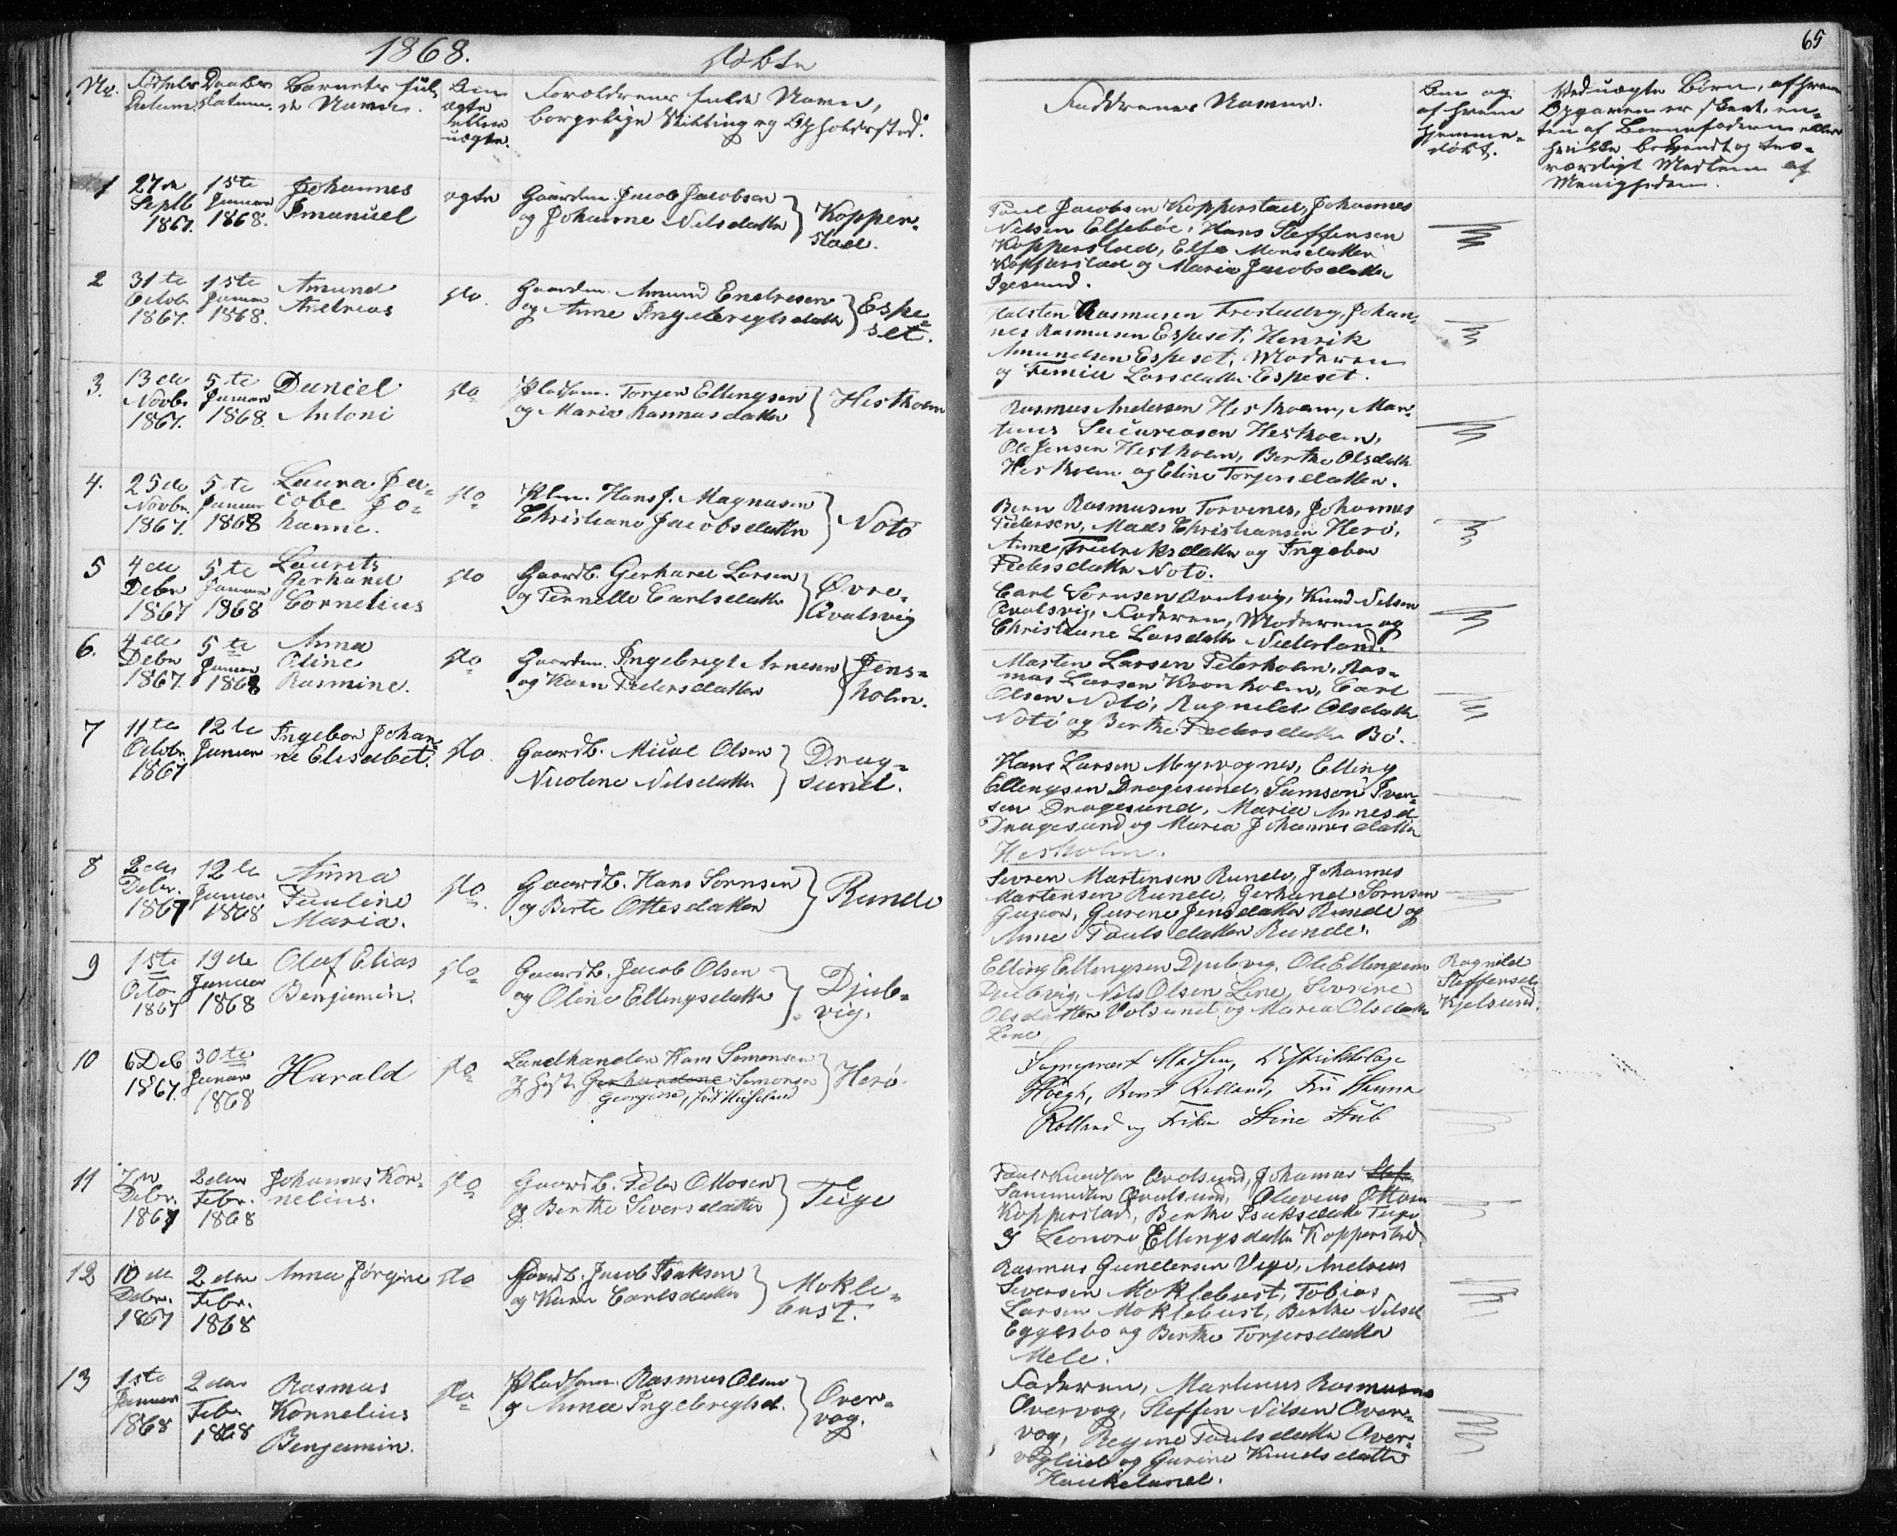 1868.
Døbte
65
No.
Fødsels Datum.
Daabens Datum.
Barnets fulde Navn.
Om ægte eller uægte.
Forældrenes fulde Navn, borgelige Stilling og Opholdssted.
Faddernes Navne.
Om og af hvem hjemmedøbt.
Ved uægte Børn, af hvem
Opgaven er skeet en-
ten af Barnefaderen eller
hvilke bekjendt og tro-
værdigt Medlem af
Menigheden.
1
27de Septb 1867.
1ste Januar 1868.
Johannes
Imanuel
ægte
Gaardm. Jacob Jacobsen
og Johanne Nilsdatter
Kopper-
stad.
Paul Jacobsen Kopperstad, Johannes
Nilsen Elsebøe, Hans Steffensen
Kopperstad, Else Monsdatter
Kopperstad og Maria Jacobsdatter
Igesund.
2
31te Octob. 1867.
1ste Januar 1868.
Amund
Andreas
do.
Gaardm. Amund Endresen
og Anne Ingebregtsdatter
Espe-
set.
Halsten Rasmusen Frostadvg, Johan-
nes Rasmusen Espeset, Henrik
Amundsen Espeset, Moderen
og Larsdatter Espeset.
3.
13de Novbr 1867.
5te Januar 1868.
Daniel
Antoni
do
Pladsm. Torger Ellingsen
og Maria Rasmusdatter
Hestholm
Rasmus Andersen Hestholm, Mar-
tinus Hestholm,
Ole Jensen Hestholm, Berthe Olsdatter
Hestholm og Eline Torgersdatter.
4.
25de Novbr. 1867.
5te Januar 1868
Laura Ja-
cobe Jo-
hanne.
do
Plm. Hans J. Magnusen
Christiane Jacobsdatter
Notø
Bern Rasmusen Torvenes, Johannes
Pedersen, Mads Christiansen Herø,
Anne Fredriksdatter og Ingebor
Pedersdatter Notø.
5
4de Debr 1867
5te Januar 1868
Laurits
Gerhard
Cornelius
do
Gaardb. Gerhard Larsen
og Pernelle Carlsdatter
Øvre-
Qvalsvig
Carl Sørnsen Qvalsvig, Knud Nilsen
Qvalsvig, Faderen, Moderen og
Christiane Larsdatter Nederland.
6.
4de Debr 1867.
5te Januar 1868
Anna
Oline
Rasmine.
do
Gaardm. Ingebregt Arnesen
og Karn Pedersdatter
Jens-
holm.
Marten Larsen Peterholm, Ras-
mus Larsen Kronholm, Carl
Olsen Notø, Ragnild Olsdatter
Notø og Berthe Pedersdatter Bø.
7
11te Octbr. 1867
12te Januar
Ingebor Johan-
ne Elisabet.
do.
Gaardb. Olsen
Nicoline Nilsdatter
Drag-
sund.
Hans Larsen Myrvognes, Elling
Ellingsen Dragesund, Samson Iver-
sen Dragesund, Maria Arnesd
Dragesund og Maria Johannesdatter
Hestholm.
8
2den Debr. 1867
12te Januar 1868
Anna
Pauline
Maria.
do.
Gaardb. Hans Sørnsen
og Berte Ottesdatter
Runde
Sevren Martensen Runde, Johannes
Martensen Runde, Gerhard Sørnsen
Gurine Jensdatter Runde og
Anne Paulsdatter Runde.
9
1ste Octo 1867
19de Januar 1868
Olaf Elias
Benjamin.
do
Gaardb. Jacob Olsen
og Oline Ellingsdatter
Djub-
vig.
Elling Ellingsen Djubvig, Ole Ellingsen
Djubvig, Nils Olsen Line, Sevrine
Olsdatter Volsund og Maria Olsdatter
Line
Ragnild
Steffensd.
Kjelsund.
10
6 Deb 1867.
30te Januar 1868
Harald
do
Landhandler Hans Simonsen
og Hust. Gerhardine Simonsen
Georgine,
Herø.
Madsen, Distriktslæge
Høegh, Rolland, Fru Hanna
Rolland og Frøken Stine Stub
11
Debr. 1867
2den Febr. 1868
Johannes Kor-
nelius.
do
Gaardb. Peder Ottosen
og Berthe Siversdatter
Teige
Paul Knudsen Qvalsund, Johannes
Qvalsund, Olavius Ottosen
Kopperstad, Berthe Isaksdatter Teige
og Leonore Ellingsdatter Kopperstad.
12
10de Debr. 1867
2den Febr. 1868
Anna Jørgine
do
Gaardb. Jacob Isaksen
og Karn Carlsdatter
Mokle-
bust.
Rasmus Gundersen Vige, Andreas
Seversen Moklebust, Tobias
Larsen Moklebust, Berthe Nilsd
Eggesbo og Berthe Torgersdatter
Mele.
13
1ste Januar 1868
2den Febr 1868
Rasmus
Kornelius
Benjamin.
do
Pladsm. Rasmus Olsen
og Anna Ingebregtsd.
Over-
vog.
Faderen, Martinus Rasmusen
Overvog, Steffen Nilsen Over-
vog, Regine Paulsdatter Over-
og Gurine Knudsdatter
Haukeland.